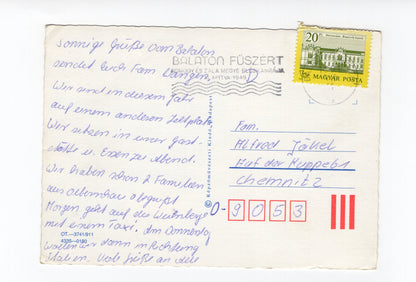 sonnige Grüße vom Balaton
sendet Euch Fam. Langen
Wir sind in diesem Jahr
auf einem anderen Zeltplatz
Wir sitzen in einer Gast-
stätte u. Essen zu Abend.
Wir haben schon 2 Familien
aus
Morgen geht auf die Weinberge
mit einem Taxi. Am Donnerstag
wollen wir dann in Richtung
Italien. Viele Grüße an alle
OT.—3741/911
4335—0180
BALATON FŰSZÉRT
1949
20f
MAGYAR POSTA
Képzőművészeti Kiadó
Fam.
Alfred Jäkel
Auf der Kuppe 61
Chemnitz
D-9053